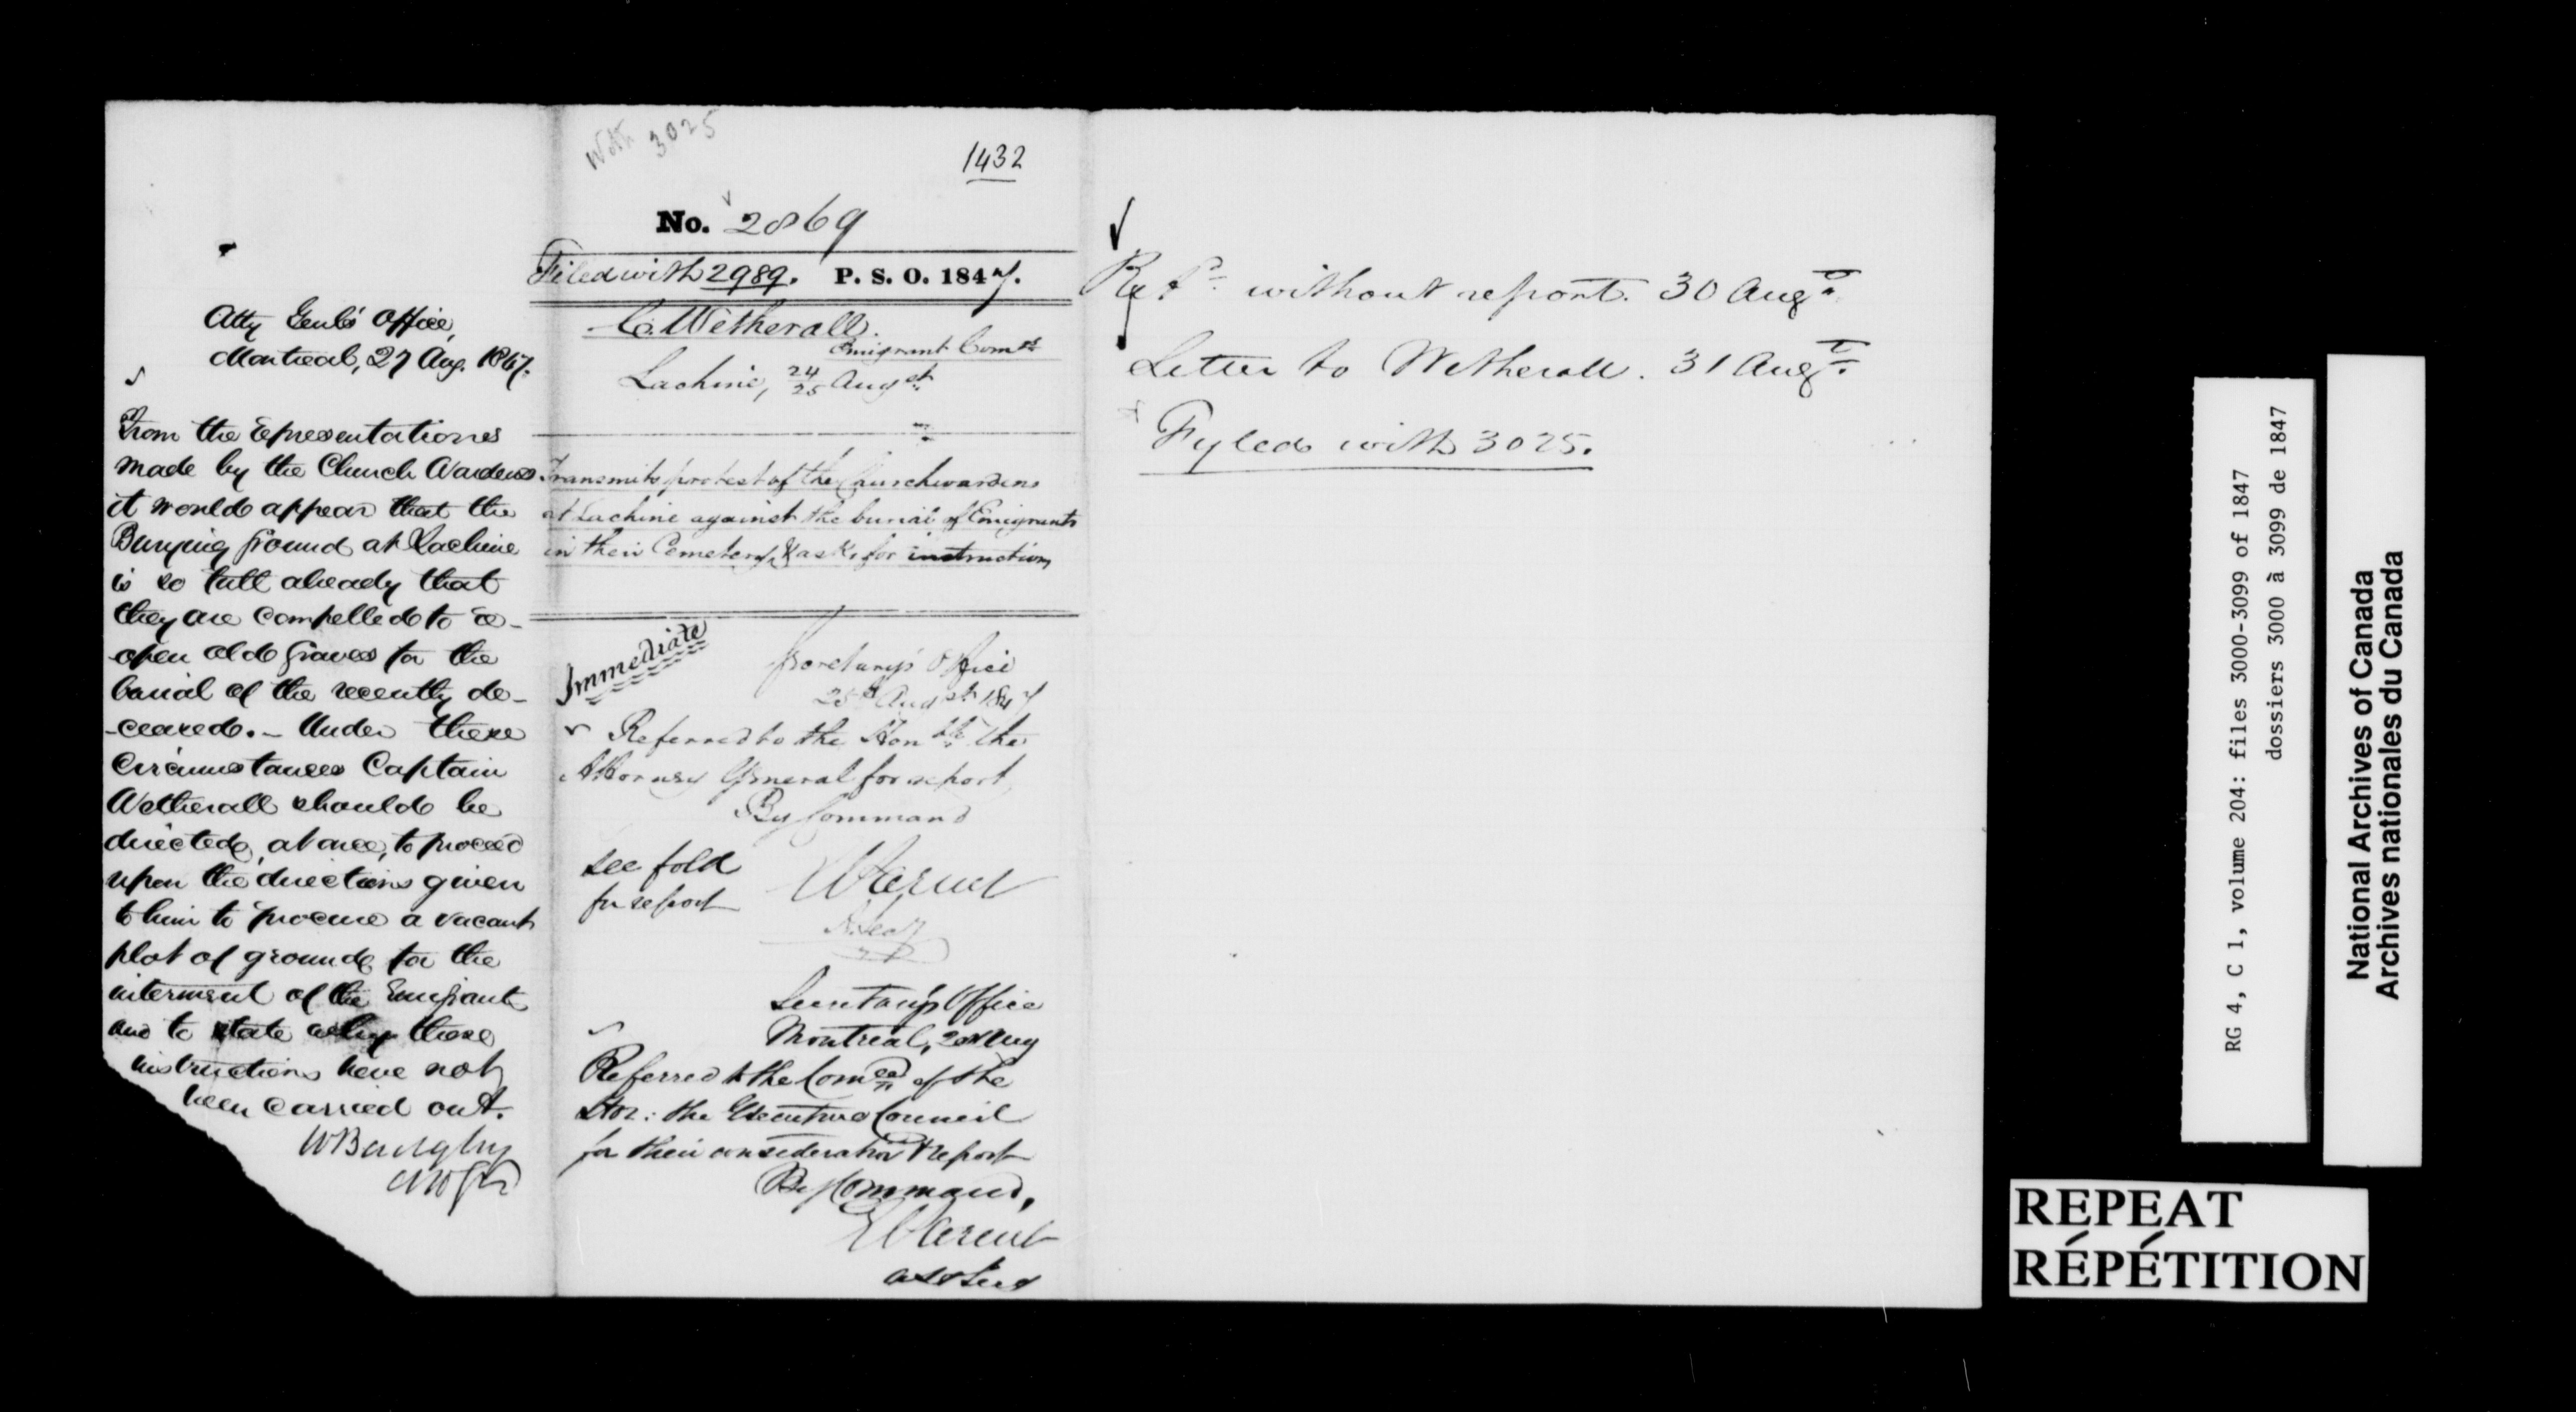 Atty Genl's Office,
Montreal, 27 Aug. 1847.
From the representations
made by the Church Wardens
it would appear that the
Burying ground at Lachine
is so full already that
they are compelled to re-
-open old graves for the
burial of the recently de-
-ceased. - Under these
circumstances Captain
Wetherall should be
directed, at once, to proceed
upon the directions given
to him to procure a vacant
plot of ground for the
interment of the Emigrants
and to state why these
instructions have not
been carried out.
W Badgley
With 3025
1432
No. 2869
Filed with 2989. P. S. O. 1847.
C. Wetherall.
Emigrant Comr
Lachine, 24/25 Augst
Transmits protest of the Churchwardens
at Lachine against the burial of Emigrants
in their Cemetery, & asks for instructions
Immediate
Secretary's Office
25th Augst 1847
Referred to the Honble the
Attorney General for report
By Command
see fold
for report
E Parent
A. Secy
Secretary's Office
Montreal, Aug
Referred to the Comee of the
Hon: the Executive Council
for their consideration & report
By Command,
E Parent
Asst Secy
Retd without report. 30 Augt.
Letter to Wetherall. 31 Augt.
Fyled with 3025.
RG 4, C 1, volume 204: files 3000-3099 of 1847
dossiers 3000 à 3099 de 1847
National Archives of Canada
Archives nationales du Canada
REPEAT
RÉPÉTITION